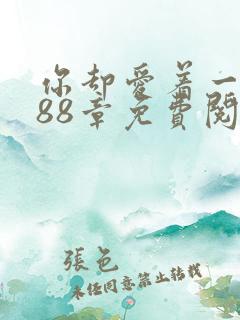 你却爱着一
88章免费阅
張邑
未任同意禁止转载